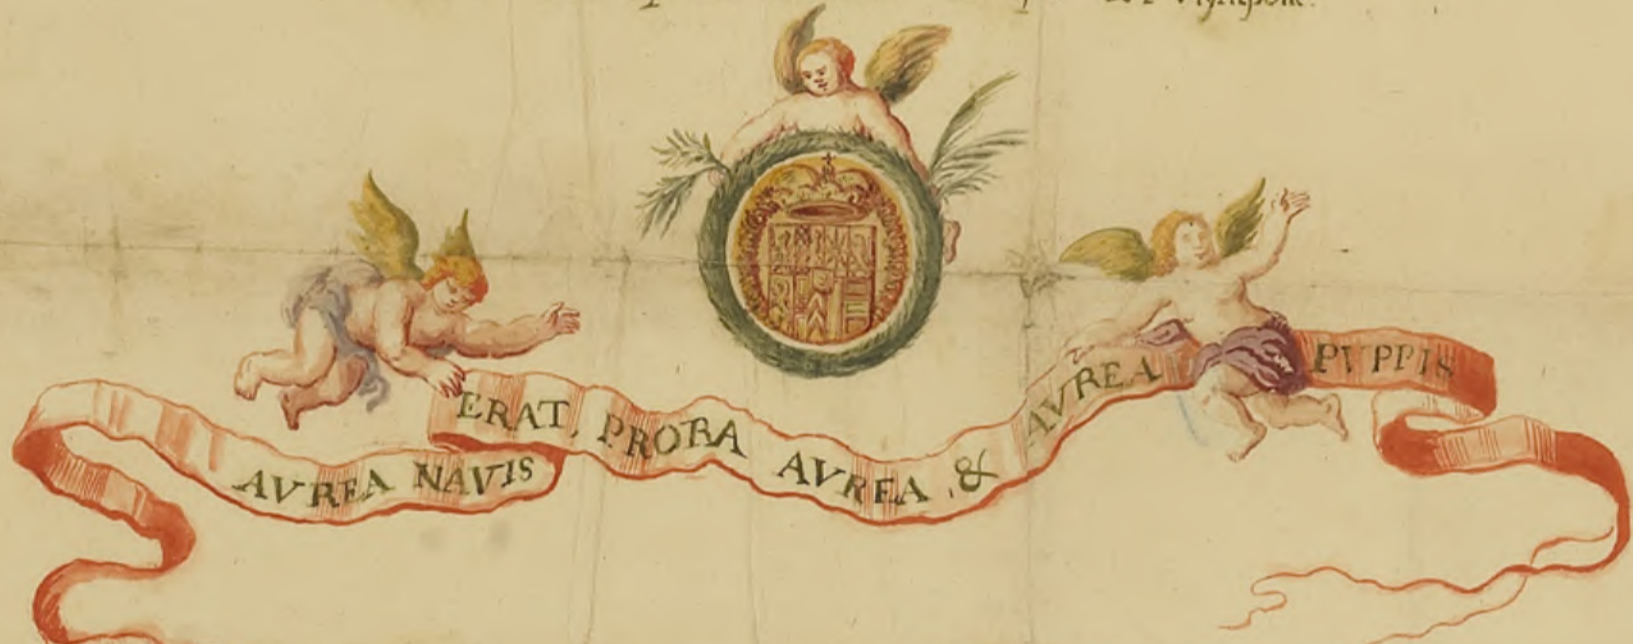 AVREA NAVIS ERAT, PRORA AVREA, & AVREA PVPPIS